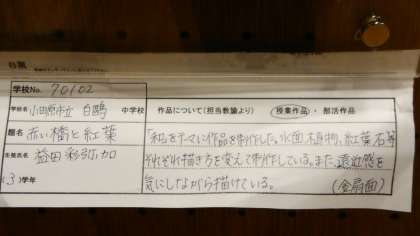 学校No. 70102
学校名 小田原市立 白鷗 中学校
題名 赤い橋と紅葉
生徒氏名 益田 彩弥加
(3)学年
作品について(担当教諭より) 授業作品・部活作品
「和」をテーマに作品を制作した。水面、植物、紅葉、石等
それぞれ描き方を変えて制作している。また、遠近感を
気にしながら描けている。 (金扇面)